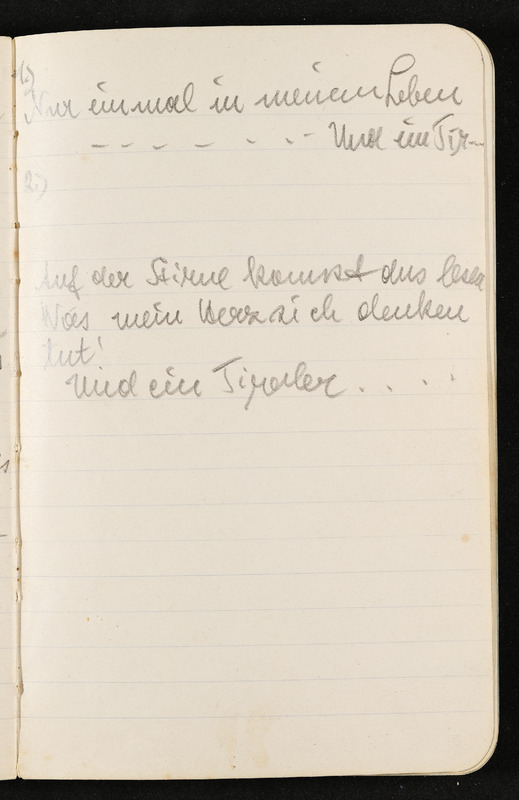 1.)
Nur einmal in meinem Leben
– – – – – . . – Und ein Tir–
2.)
Auf der Stirne kannst das lesen
Was mein Herz sich denken
tut!
Und ein Tiroler . . . .